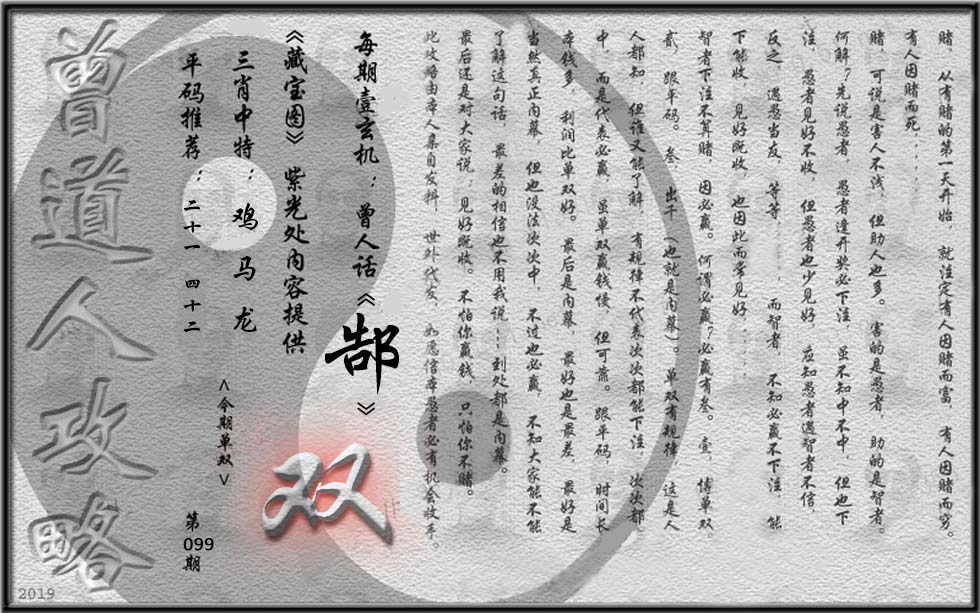 赌，从有赌的第一天开始，就注定有人因赌而富，有人因赌而穷。
有人因赌而死．．．．．
赌，可说是害人不浅，但助人也多。害的是愚者，助的是智者。
何解？先说愚者，愚者逢开奖必下注，虽不知中不中，但也下
注，愚者见好不收，但愚者也少见好，应知愚者遇智者不信，
反之，遇愁当友，等等．．．．．．而智者，不知必赢不下注，能
下能收，见好既收，也因此而常见好．．．．．
智者下注不算赌，因必赢。何谓必赢？必赢有叁。壹，博单双，
贰，跟平码。叁，出千（也就是内幕）。单双有规律，这是人
人都知，但谁又能了解，有规律不代表次次都能下注，次次都
中，而是代表必赢，虽单双赢钱慢，但可靠。跟平码，时间长，
本钱多，利润比单双好。最后是内幕，最好也是最差，最好是
当然真正内幕，但也没法次次中，不过也必赢，不知大家能不能
了解这句话，最差的相信也不用我说┅到处都是内幕。
最后还是对大家说：见好既收。不怕你赢钱，只怕你不赌。
此攻略由本人集自发料，世外代友，如愿信本愚者必有机会收手。
每期壹玄机：曾人话《郜》
《藏宝图》紫光处内容提供
三肖中特：鸡 马 龙
平码推荐：二十一 四十二
<今期单双>
双
第
099
期
曾道人攻略
2019